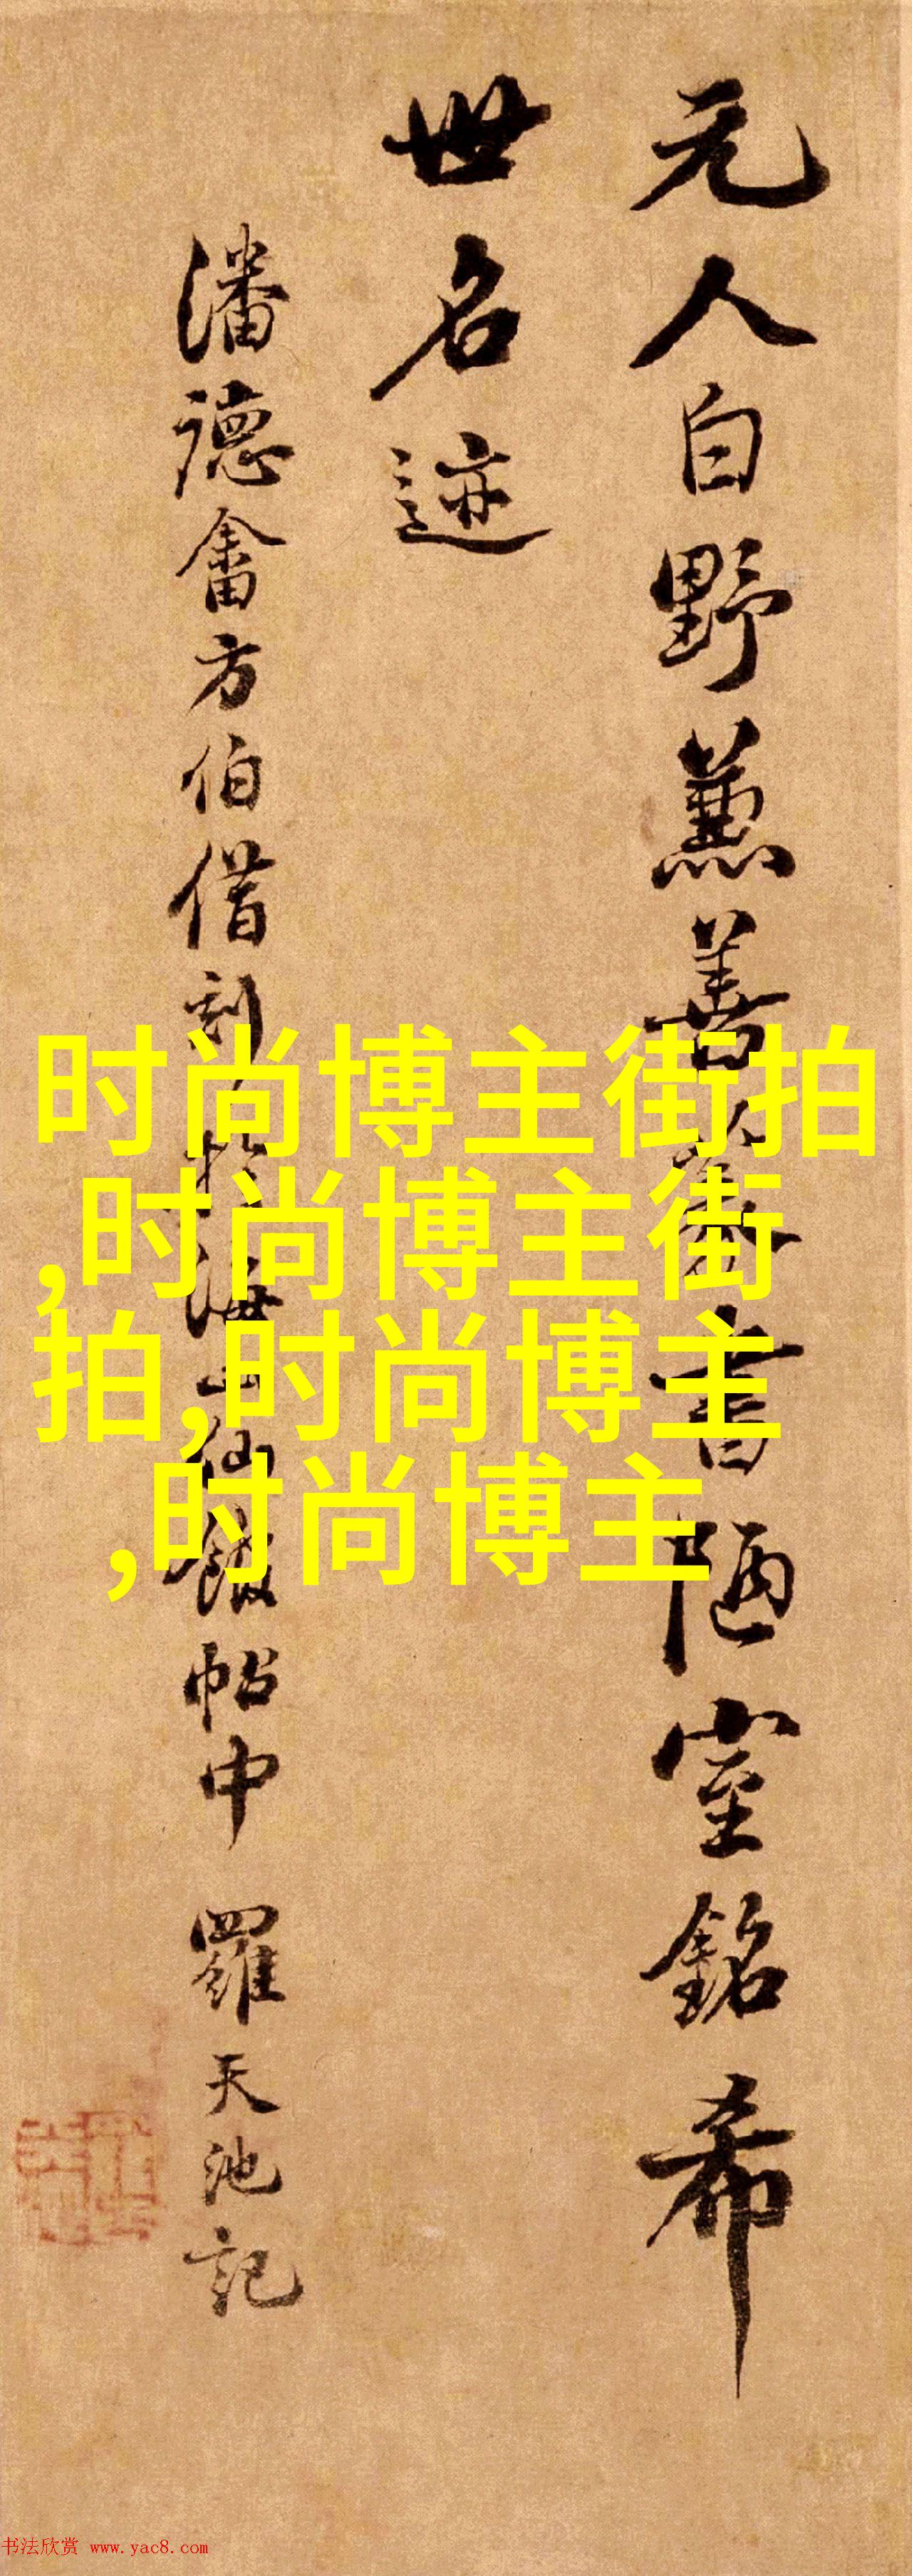 元人白野兼善篆書陋室銘希
世名迹
潘德畬方伯借刻於海山仙館帖中 羅天池記
时尚博主街拍
,时尚博主街
拍,时尚博主
,时尚博主
书法欣赏 www.yac8.com